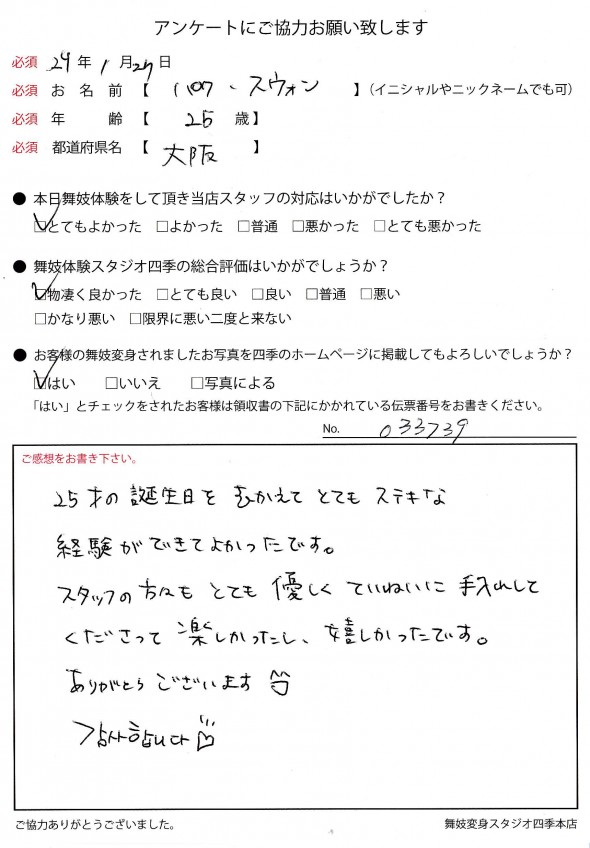 アンケートにご協力お願い致します
必須 24年1月27日
必須 お名前【 ・スウォン 】（イニシャルやニックネームでも可）
必須 年齢【 25 歳】
必須 都道府県名【 大阪 】
● 本日舞妓体験をして頂き当店スタッフの対応はいかがでしたか？
☑とてもよかった □よかった □普通 □悪かった □とても悪かった
● 舞妓体験スタジオ四季の総合評価はいかがでしょうか？
☑物凄く良かった □とても良い □良い □普通 □悪い
□かなり悪い □限界に悪い二度と来ない
● お客様の舞妓変身されましたお写真を四季のホームページに掲載してもよろしいでしょうか？
☑はい □いいえ □写真による
「はい」とチェックをされたお客様は領収書の下記にかかれている伝票番号をお書きください。
No. 033739
ご感想をお書き下さい。
25才の誕生日をむかえてとてもステキな
経験ができてよかったです。
スタッフの方々もとても優しくていねいに手入れして
くださって楽しかったし、嬉しかったです。
ありがとうございます
감사합니다
ご協力ありがとうございました。
舞妓変身スタジオ四季本店